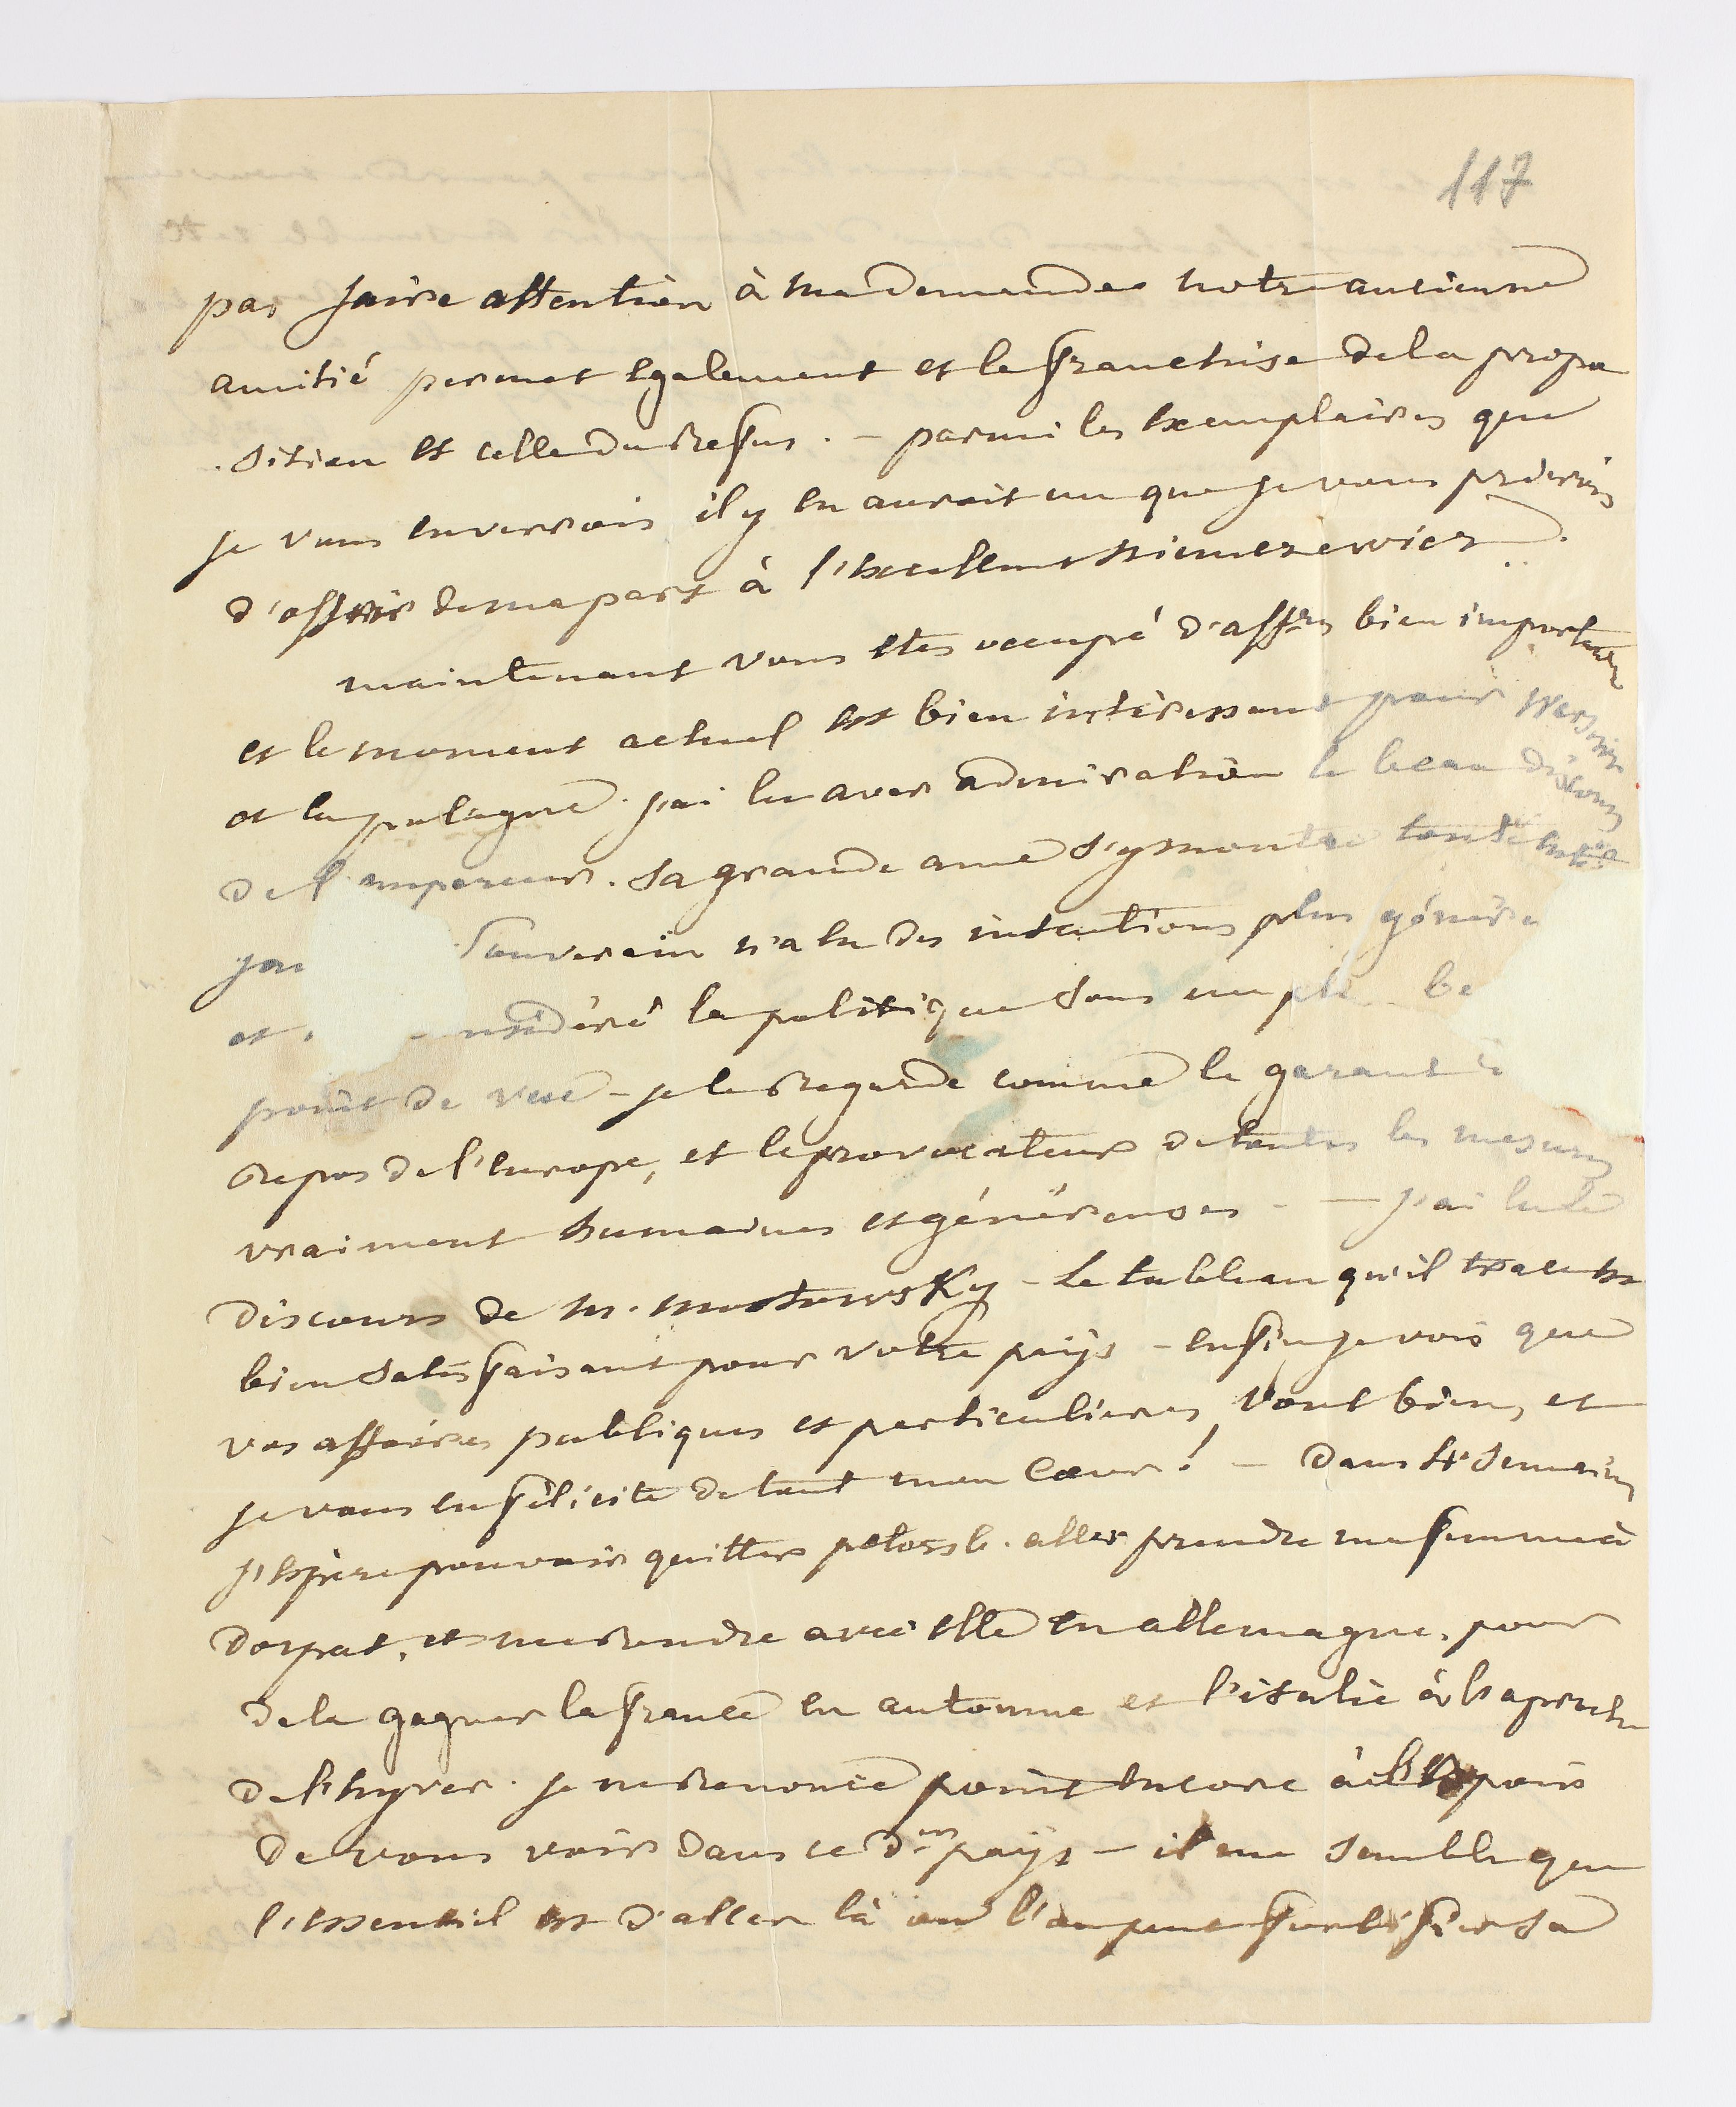 117
pas faire attention à ma demande notre ancienne
amitié permet egalement et la franchise de la propo
sition et celle du refus. - parmi les exemplaires que
je vous enverrois il y en auroit un que je vous prierois
d'offrir de ma part à l'excellent Niemczewicz.
maintenant vous etes occupé d'affres bien importantes
et le moment actuel est bien intéressant pour Warsovie
et la pologne. j'ai lu avec admiration le beau discours
de l'empereur. sa grande ame s'y montre toute entière
jam souverain n'a eu des intentions plus génére
et nsidéré la politique sous un plu be
point de vue - je le regarde comme le garant d
repos de l'europe, et le provocateur de toutes les mesures
vraiment humaines et généreuses. — j'ai lu le
discours de m. mostowsky - Le tableau qu'il trace est
bien satisfaisant pour votre pays - enfin je vois que
vos affaires publiques et particulieres vont bien, et
je vous en félicite de tout mon cœur! - Dans semaines
j'espère pouvoir quitter petersb. aller prendre ma femme à
dorpat, et me rendre avec elle en allemagne, pour
de la gagner la france en automne et l'italie à l'approche
de l'hyver. je ne renonce point encore à l'espoir
de vous voir dans ce der pays - il me semble que
l'essentiel est d'aller là où l'on peut fortifier sa